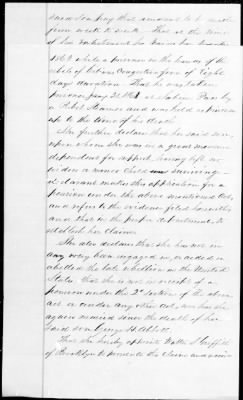 said son pay that amount to be made
from week to week. That at the time
of his enlistment he
186 while a prisoner in the hands of the
rebels of Congestion fever of Eight
days duration. That he was taken
prisoner at Pass by
a Rebel Steamer and was held a prisoner
up to the time of his death
She further declares that her said son,
upon whom she was in a great measure
dependent for support, having left no
widow or minor child surviving
declarant makes this application for a
pension under the above mentioned Act,
and refers to the evidence filed herewith,
and that in the proper department, to
establish her claim.
She also declares that she has not in
any way been engaged in, or aided or
abetted the late rebellion in the United
States that she is not in receipt of a
pension under the 2d section of the above
act or under any other Act, nor has she
again married since the death of her
said son George H. Abbott
That she hereby appoints Walter S. Griffith
of Brooklyn to present the claim and